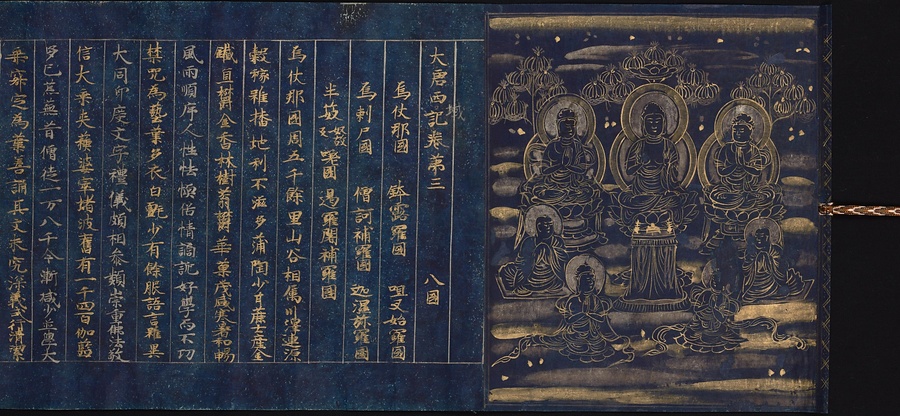 大唐西域記卷第三　八國
烏仗那國　鉢露羅國　呾叉始羅國
烏剌尸國　僧訶補羅國　迦濕弥羅國
半笯嗟國　曷羅闍補羅國
烏仗那國周五千餘里山谷相属川澤連源
穀稼雖播地利不滋多蒲陶少甘蔗土産金
鐵宜欝金香林樹蓊欝華菓茂盛寒暑和暢
風雨順序人性怯愞俗情譎詭好學而不功
禁咒為藝業多衣白氎少有餘服語言雖異
大同印度文字禮儀頗相叅類崇重佛法敬
信大乘夾蘇婆窣堵波舊有一千四百伽藍
多已荒蕪昔僧徒一万八千今漸減少並大
乘寂定為業善誦其文未究深義戒行清潔